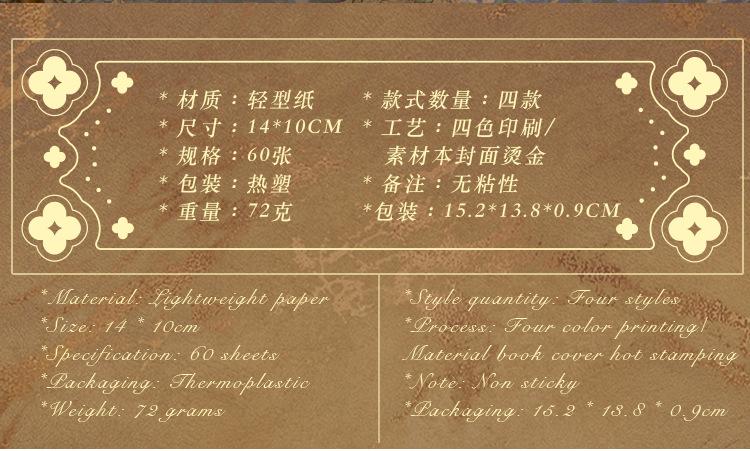 * 材质：轻型纸
* 尺寸：14*10CM
* 规格：60张
* 包装：热塑
* 重量：72克
* 款式数量：四款
* 工艺：四色印刷/
素材本封面烫金
* 备注：无粘性
*包装：15.2*13.8*0.9CM
*Material: Lightweight paper
*Size: 14 * 10cm
*Specification: 60 sheets
*Packaging: Thermoplastic
*Weight: 72 grams
*Style quantity: Four styles
*Process: Four color printing/
Material book cover hot stamping
*Note: Non sticky
*Packaging: 15.2 * 13.8 * 0.9cm